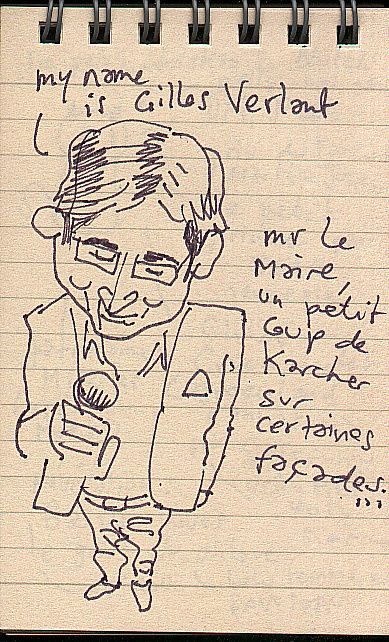 my name
is Gilles Verlant
mr le
Maire,
un petit
Coup de
Karcher
sur
certaines
façades...